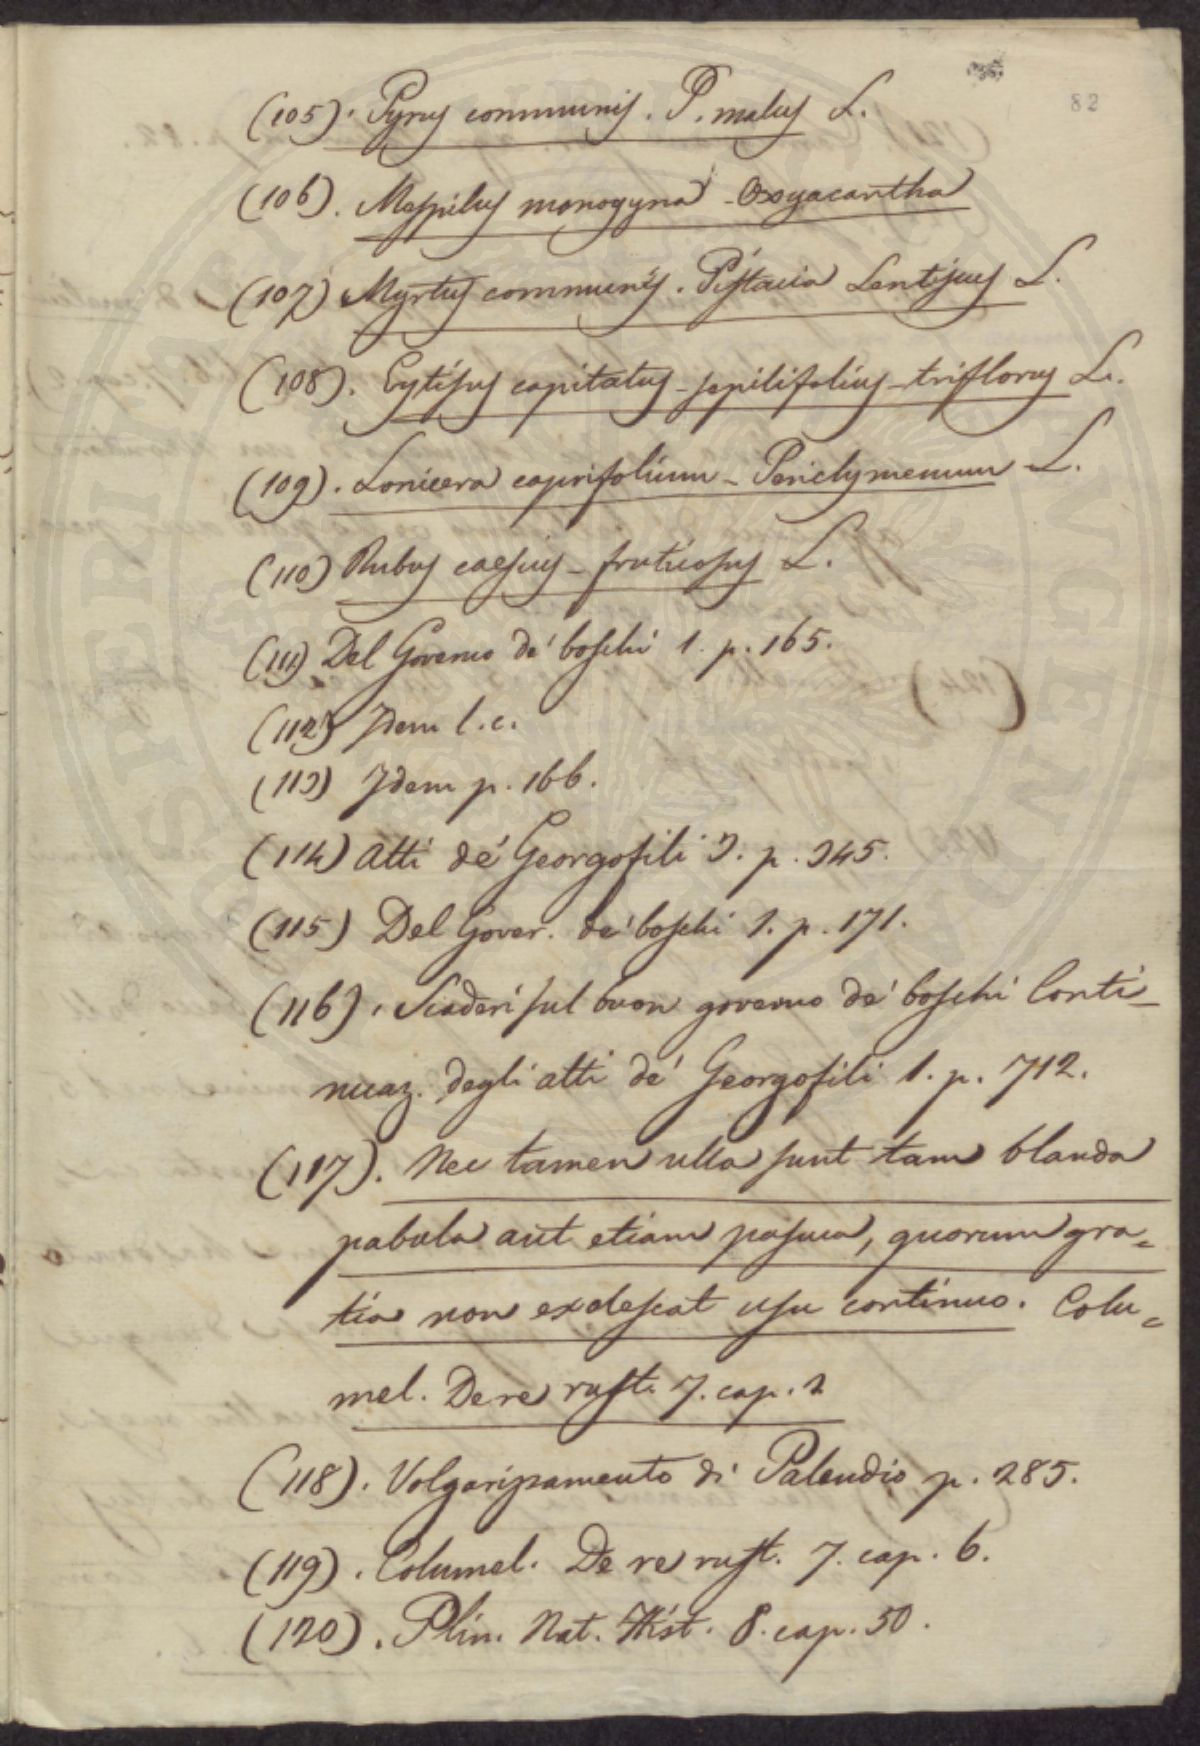 82
(105). Pyrus communis. P. malus L.
(106). Mespilus monogyna - Oxyacantha
(107) Myrtus communis. Pistacia Lentiscus L.
(108). Cytisus capitatus - sepilifolius - triflorus L.
(109). Lonicera caprifolium - Periclymenum L.
(110) Rubus caesius - fruticosus L.
(111) Del Governo de' boschi 1. p. 165.
(112) Idem l. c.
(113) Idem p. 166.
(114) Atti de' Georgofili 3. p. 345.
(115) Del Gover. de' boschi 1. p. 171.
(116). Siaderi sul buon governo de' boschi Conti-
nuaz. degli atti de' Georgofili 1. p. 712.
(117). Nec tamen ulla sunt tam blanda
pabula aut etiam pascua, quorum gra=
tia non exolescat usu continuo. Colu=
mel. De re rust. 7. cap. 2
(118). Volgarizzamento di Palendio p. 285.
(119). Columel. De re rust. 7. cap. 6.
(120). Plin. Nat. Hist. 8. cap. 50.